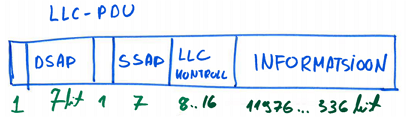 LLC-PDU
DSAP SSAP LLC KONTROLL INFORMATSIOON
1 7bit 1 7 8..16 11976...336 bit